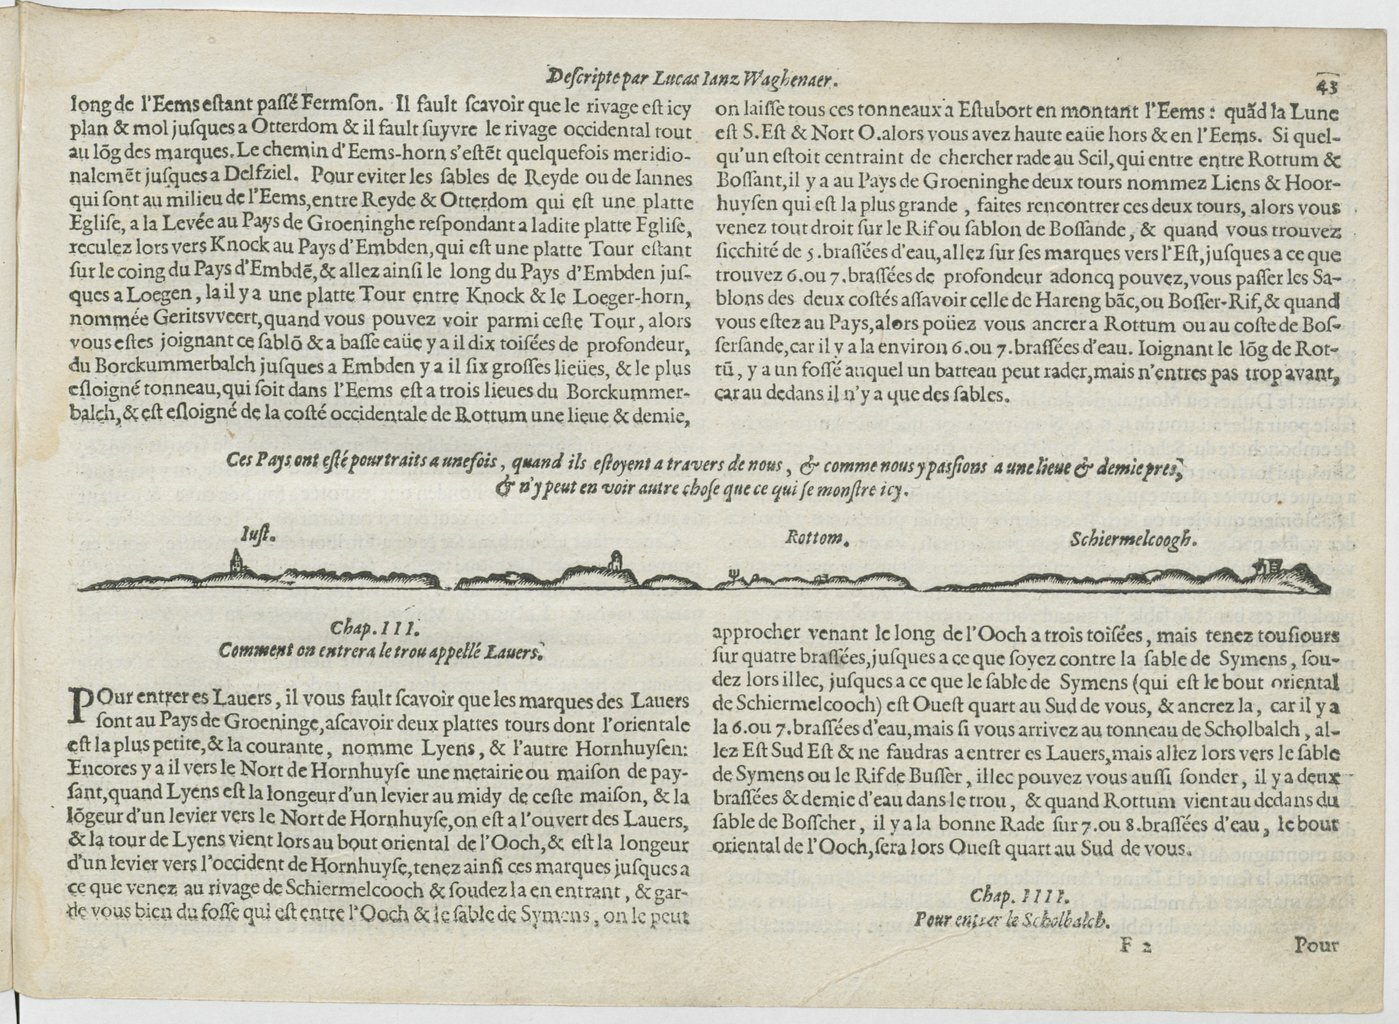 Descripte par Lucas Ianz Waghenaer.
43
long de l'Eems estant passé Fermson. Il fault scavoir que le rivage est icy
plan & mol jusques a Otterdom & il fault suyvre le rivage occidental tout
au lõg des marques. Le chemin d'Eems-horn s'estẽt quelquefois meridio-
nalemẽt jusques a Delfziel. Pour eviter les sables de Reyde ou de Iannes
qui sont au milieu de l'Eems, entre Reyde & Otterdom qui est une platte
Eglise, a la Levée au Pays de Groeninghe respondant a ladite platte Eglise,
reculez lors vers Knock au Pays d'Embden, qui est une platte Tour estant
sur le coing du Pays d'Embdẽ, & allez ainsi le long du Pays d'Embden jus-
ques a Loegen, la il y a une platte Tour entre Knock & le Loeger-horn,
nommée Geritsvveert, quand vous pouvez voir parmi ceste Tour, alors
vous estes joignant ce sablõ & a basse eaüe y a il dix toisées de profondeur,
du Borckummerbalch jusques a Embden y a il six grosses lieües, & le plus
esloigné tonneau, qui soit dans l'Eems est a trois lieues du Borckummer-
balch, & est esloigné de la costé occidentale de Rottum une lieue & demie,
on laisse tous ces tonneaux a Estubort en montant l'Eems: quãd la Lune
est S. Est & Nort O. alors vous avez haute eaüe hors & en l'Eems. Si quel-
qu'un estoit centraint de chercher rade au Scil, qui entre entre Rottum &
Bossant, il y a au Pays de Groeninghe deux tours nommez Liens & Hoor-
huysen qui est la plus grande, faites rencontrer ces deux tours, alors vous
venez tout droit sur le Rif ou sablon de Bossande, & quand vous trouvez
sicchité de 5. brassées d'eau, allez sur ses marques vers l'Est, jusques a ce que
trouvez 6. ou 7. brassées de profondeur adoncq pouvez, vous passer les Sa-
blons des deux costés assavoir celle de Hareng bãc, ou Bosser-Rif, & quand
vous estez au Pays, alors poüez vous ancrer a Rottum ou au coste de Bos-
sersande, car il y a la environ 6. ou 7. brassées d'eau. Ioignant le lõg de Rot-
tũ, y a un fossé auquel un batteau peut rader, mais n'entres pas trop avant,
car au dedans il n'y a que des sables.
Ces Pays ont esté pourtraits a unefois, quand ils estoyent a travers de nous, & comme nous y passions a une lieue & demie pres,
& n'y peut en voir autre chose que ce qui se monstre icy.
Iust. Rottom. Schiermelcoogh.
Chap. III.
Comment on entrera le trou appellé Lauers.
POur entrer es Lauers, il vous fault scavoir que les marques des Lauers
sont au Pays de Groeninge, ascavoir deux plattes tours dont l'orientale
est la plus petite, & la courante, nomme Lyens, & l'autre Hornhuysen:
Encores y a il vers le Nort de Hornhuyse une metairie ou maison de pay-
sant, quand Lyens est la longeur d'un levier au midy de ceste maison, & la
lõgeur d'un levier vers le Nort de Hornhuyse, on est a l'ouvert des Lauers,
& la tour de Lyens vient lors au bout oriental de l'Ooch, & est la longeur
d'un levier vers l'occident de Hornhuyse, tenez ainsi ces marques jusques a
ce que venez au rivage de Schiermelcooch & soudez la en entrant, & gar-
de vous bien du fosse qui est entre l'Ooch & le sable de Symens, on le peut
approcher venant le long de l'Ooch a trois toisées, mais tenez tousiours
sur quatre brassées, jusques a ce que soyez contre la sable de Symens, sou-
dez lors illec, jusques a ce que le sable de Symens (qui est le bout oriental
de Schiermelcooch) est Ouest quart au Sud de vous, & ancrez la, car il y a
la 6. ou 7. brassées d'eau, mais si vous arrivez au tonneau de Scholbalch, al-
lez Est Sud Est & ne faudras a entrer es Lauers, mais allez lors vers le sable
de Symens ou le Rif de Busser, illec pouvez vous aussi sonder, il y a deux
brassées & demie d'eau dans le trou, & quand Rottum vient au dedans du
sable de Bosscher, il y a la bonne Rade sur 7. ou 8. brassées d'eau, le bout
oriental de l'Ooch, sera lors Ouest quart au Sud de vous.
Chap. IIII.
Pour entrer le Scholbalch.
F 2 Pour